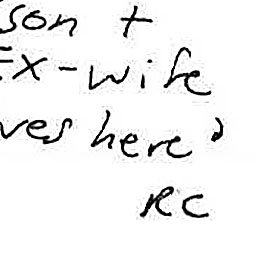 son +
Ex-wife
ves here"
RC